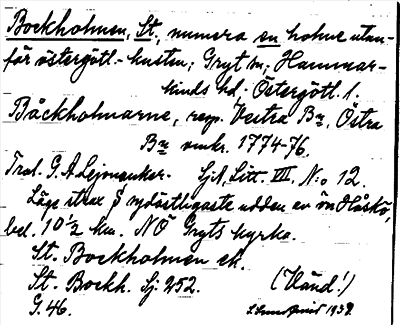 Bockholmen, St., numera en holme utan-
för östergötl.-kusten; Gryt sn, Hammar-
kinds hd. Östergötl. l.
Båckholmarne, resp. Vestra Bne, Östra
Bne omkr. 1774-76.
Trol. G. A. Lejonanker. SjA, Litt. VIII, No 12.
Läge strax S sydöstligaste udden av ön Håskö,
bel. 10 ½ km. NÖ Gryts kyrka.
St. Bockholmen ek.
St. Bockh. Sj. 252. (Vänd!)
G. 46. 1939.